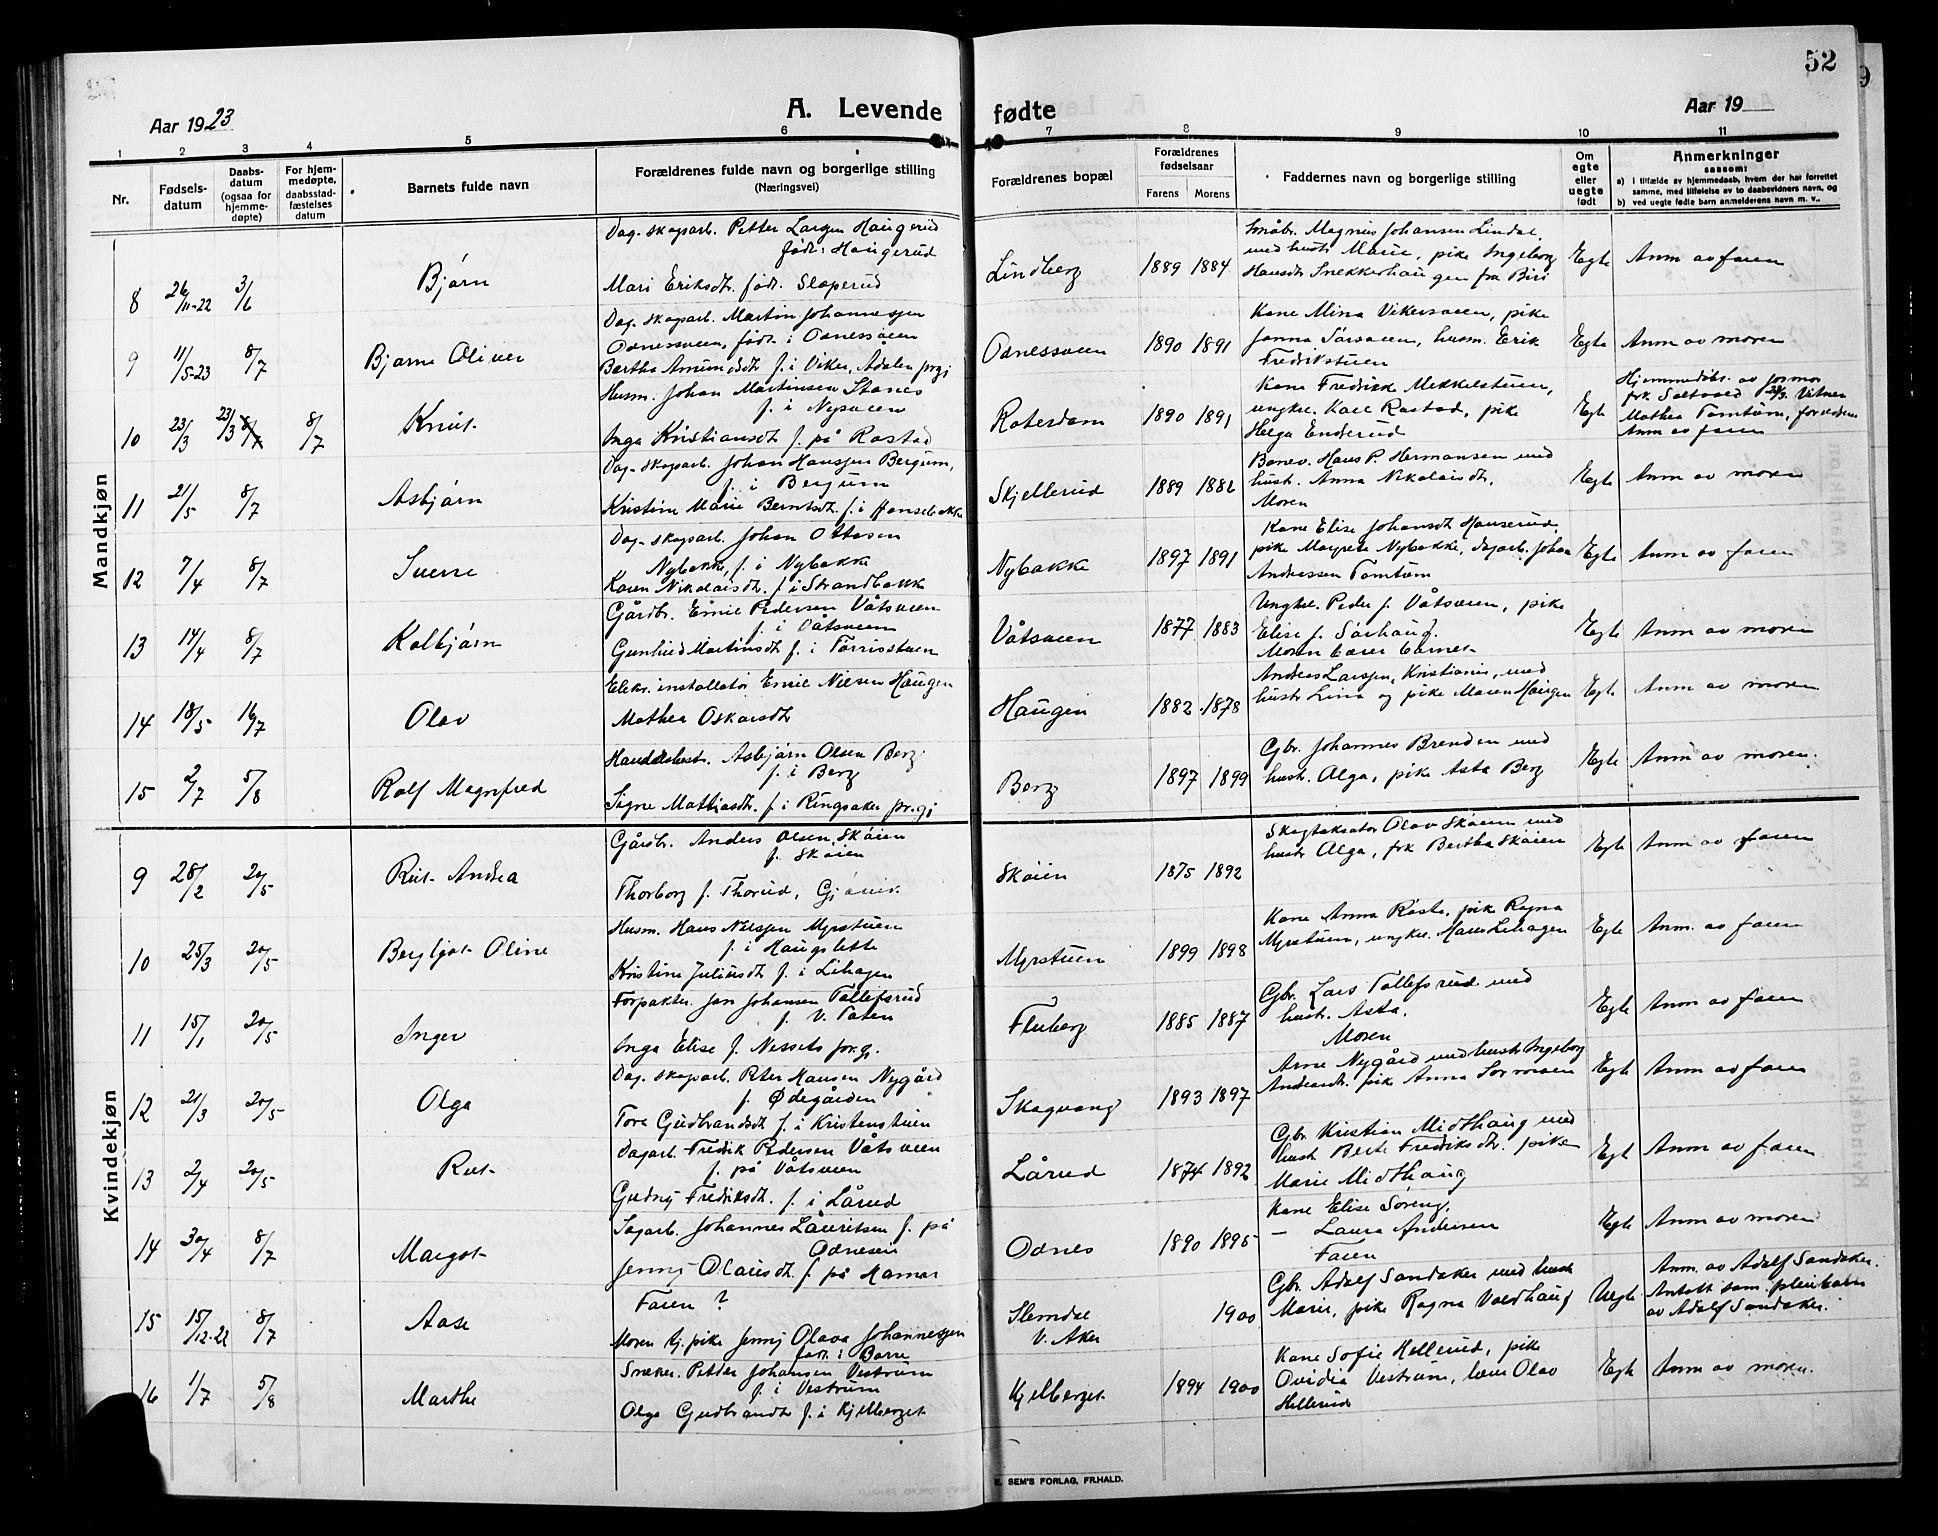 52
Aar 1923
A. Levende fødte
Aar 19
1 2 3 4 5 6 7 8 9 10 11
Nr.
Fødsels-
datum
Daabs-
datum
(ogsaa for
hjemme-
døpte)
For hjem-
medøpte,
daabsstad-
fæstelses
datum
Barnets fulde navn
Forældrenes fulde navn og borgerlige stilling
(Næringsvei)
Forældrenes bopæl
Forældrenes
fødselsaar
Farens Morens
Faddernes navn og borgerlige stilling
Om
egte
eller
uegte
født
Anmerkninger
saasom:
a) i tilfælde av hjemmedaab, hvem der har forrettet
samme, med tilføielse av to daabsvidners navn, og
b) ved uegte fødte barn anmelderens navn m. v..
Mandkjøn
8 26/11-22 3/6 Bjørn
Dag. skogarb. Petter Larsen Haugerud
født: Haugerud
Mari Eriksdt. født. Sloperud
Lindberg 1889 1884
Småbr. Magnus Johansen Lindal,
med hustr Marie, pike Ingeborg
Hansdt Snekkerhaugen fra Biri
Egte Anm av faren
9 11/5-23 8/7 Bjarne Oliver
Dag. skogarb. Martin Johannessen
Odnessveen, født i Odnessveen
Bertha Amundsdt f. i Viker, Ådalen prgj
Odnessveen 1890 1891
Kone Mina Vikersveen, pike
Janna Sørsveen, husm. Erik
Fredrikstuen
Egte Anm av moren
10 23/3 23/3 8/7 8/7 Knut
Husm. Johan Martinsen Stanes
f. i Nysveen
Inga Kristiansdt f. på Rostad
Roterdam 1890 1891
Kone Fredrik Mekkelstuen,
ungkr. Karl Rostad, pike
Helga Enderud
Egte
Hjemmedøbt av jormor
frk. Saltveed 23/3. Vitner
Mathea Tomtum, forældrene
Anm av faren
11 21/5 8/7 Asbjørn
Dag. skogarb. Johan Hanssen Bergum,
f. i Bergum
Kristine Marie Berntsdt. f. i Hansebakke
Skjellerud 1889 1882
Banev. Hans P. Hermansen med
hust. Anna Nikolaisdt.
Moren
Egte Anm av moren
12 7/4 8/7 Sverre
Dag. skogarb. Johan Ottosen
Nybakke, f. i Nybakke
Karen Nikolaisdt. f. i Strandbakke
Nybakke 1897 1891
Kone Elise Johansdt Hanserud,
pike Margrete Nybakke, dagarb. Johan
Andreassen Tomtum
Egte Anm av faren
13 14/4 8/7 Kolbjørn
Gårdbr. Emil Pedersen Våtsveen
f. i Våtsveen
Gunhild Martinsdt f. i Tørrisstuen
Våtsveen 1877 1883
Ungkr. Peder f. Våtsveen, pike
Elise f. Sørhaug.
Moren bærer barnet
Egte Anm av moren
14 18/5 16/7 Olav
Elekr. installatør Emil Nilsen Haugen
Mathea Oskarsdt
Haugen 1882 1878
Andreas Larssen, Kristiania, med
hustr Lina og pike Maren Haugen
Egte Anm av moren
15 2/7 5/8 Rolf Magnfred
Handelsbest. Asbjørn Olsen Berg
f. i Berg
Signe Mathiasdt. f. i Ringsaker pr.gj
Berg 1897 1899
Gbr. Johannes Brenden med
hust. Alga, pike Asta Berg
Egte Anm av moren.
Kvindekjøn
9 28/2 20/5 Rut Andrea
Gårdbr. Anders Olsen Skøien
f. Skøien
Thorborg f. Thorud, Gjøvik
Skøien 1875 1892
Skogtaksator Olav Skøien med
hustr Alga, frk Bertha Skøien
Egte Anm. av faren
10 25/3 20/5 Bergljot Oline
Husm. Hans Nilsen Myrstuen
f. i Haugslette
Kristine Juliusdt f. i Lihagen
Myrstuen 1899 1898
Kone Anna Røste, pik Ragna
Myrstuen, ungkr. Hans Lihagen
Egte Anm. av faren
11 15/1 20/5 Inger
Forpakter. Jon Johansen Tollefsrud
f. V. Toten
Inga Elise f. Nessets prgj.
Fluberg 1885 1887
Gbr. Lars Tollefsrud med
hustr. Asta.
Moren
Egte Anm av faren
12 21/3 20/5 Olga
Dag. skogarb. Peter Hansen Nygård
f. Ødegården
Tora Gudbrandsdt f. i Kristenstuen
Skogvang 1893 1897
Arne Nygård med hustr Ingeborg
Andersdt. pik Anna Sormoen
Egte Anm av faren
13 2/4 20/5 Rut
Dagarb. Fredrik Pedersen Våtsveen
f. på Våtsveen
Gudny Fredriksdt. f. i Lårud
Lårud 1874 1892
Gbr Kristian Midthaug med
hust. Berte Fredriksdt. pike
Marie Midthaug
Egte Anm av faren
14 30/4 8/7 Margot
Sagarb. Johannes Lauritsen f. på
Odnesen
Jenny Olausdt. f. på Hamar
Odnes 1890 1895
Kone Elise Søreng,
— Laura Andersen
Faren
Egte Anm av moren
15 15/12-22 8/7 Aase
Faren ?
Moren tj. pike Jenny Olava Johannessen
født i Borre
Slemdal
V. Aker
1900
Gbr. Adolf Sandaker med hust
Marie, pike Ragna Voldhaug
Uegte
Anm. av Adolf Sandaker.
Antatt som pleiebarn
av Adolf Sandaker.
16 1/7 5/8 Marthe
Snekker. Petter Johansen Vestrum
f. i Vestrum
Olga Gudbrandt f. i Kjelberget
Kjelberget 1894 1900
Kone Sofie Hellerud, pike
Ovidia Vestrum, lærer Olav
Hellerud
Egte Anm av moren.
E. SEM'S FORLAG, FR.HALD.